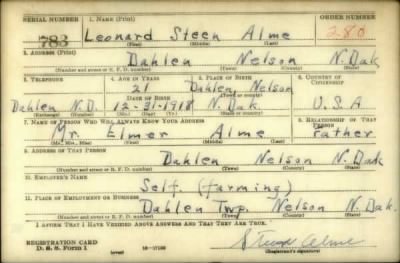 SERIAL NUMBER 1. NAME (Print) ORDER NUMBER
783 Leonard Steen Alme 280
(First) (Middle) (Last)
2. ADDRESS (Print)
Dahlen Nelson N. Dak
(Number and street or R. F. D. number) (Town) (County) (State)
3. TELEPHONE 4. AGE IN YEARS 5. PLACE OF BIRTH 6. COUNTRY OF CITIZENSHIP
21 Dahlen, Nelson
DATE OF BIRTH (Town or county)
Dahlen N.D. 12-31-1918 N. Dak. U.S.A
(Exchange) (Number) (Mo.) (Day) (Yr.) (State or country)
7. NAME OF PERSON WHO WILL ALWAYS KNOW YOUR ADDRESS 8. RELATIONSHIP OF THAT PERSON
Mr. Elmer Alme Father
(Mr., Mrs., Miss) (First) (Middle) (Last)
9. ADDRESS OF THAT PERSON
Dahlen Nelson N. Dak
(Number and street or R. F. D. number) (Town) (County) (State)
10. EMPLOYER'S NAME
Self. (farming)
11. PLACE OF EMPLOYMENT OR BUSINESS
Dahlen Twp. Nelson N. Dak.
(Number and street or R. F. D. number) (Town) (County) (State)
I AFFIRM THAT I HAVE VERIFIED ABOVE ANSWERS AND THAT THEY ARE TRUE.
REGISTRATION CARD
D. S. S. Form 1 (over) 16-17105
Steen Alme
(Registrant's signature)